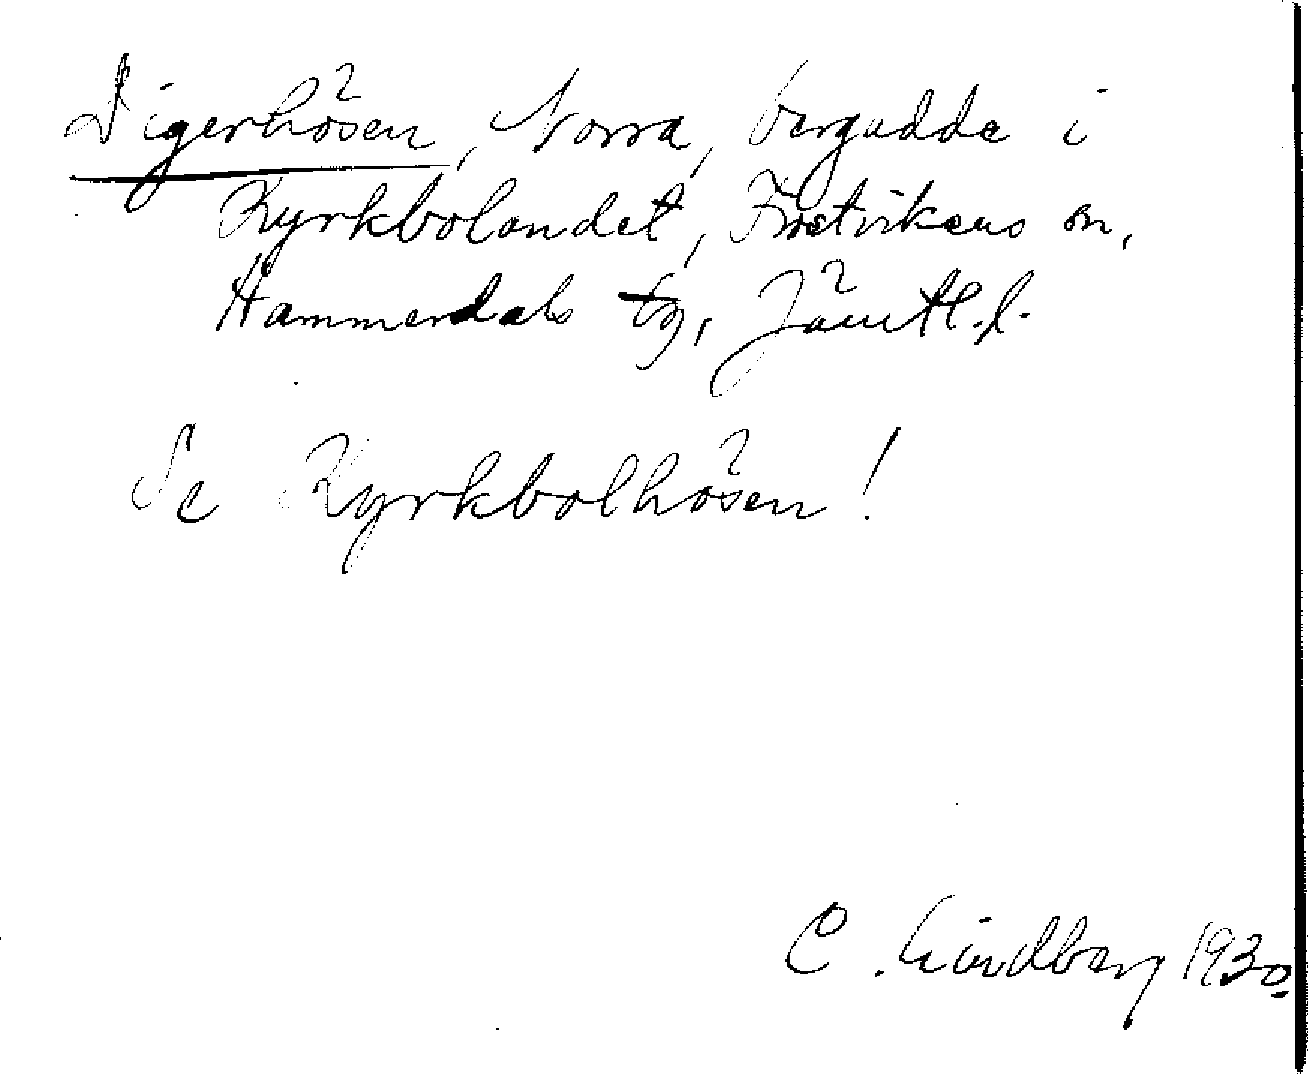 Digerhösen, Norra, bergudde i
Kyrkbolandet, Frostvikens sn,
Hammerdals tg, Jämtl. l.
Se Kyrkbolhösen!
C. Lindberg 1930.